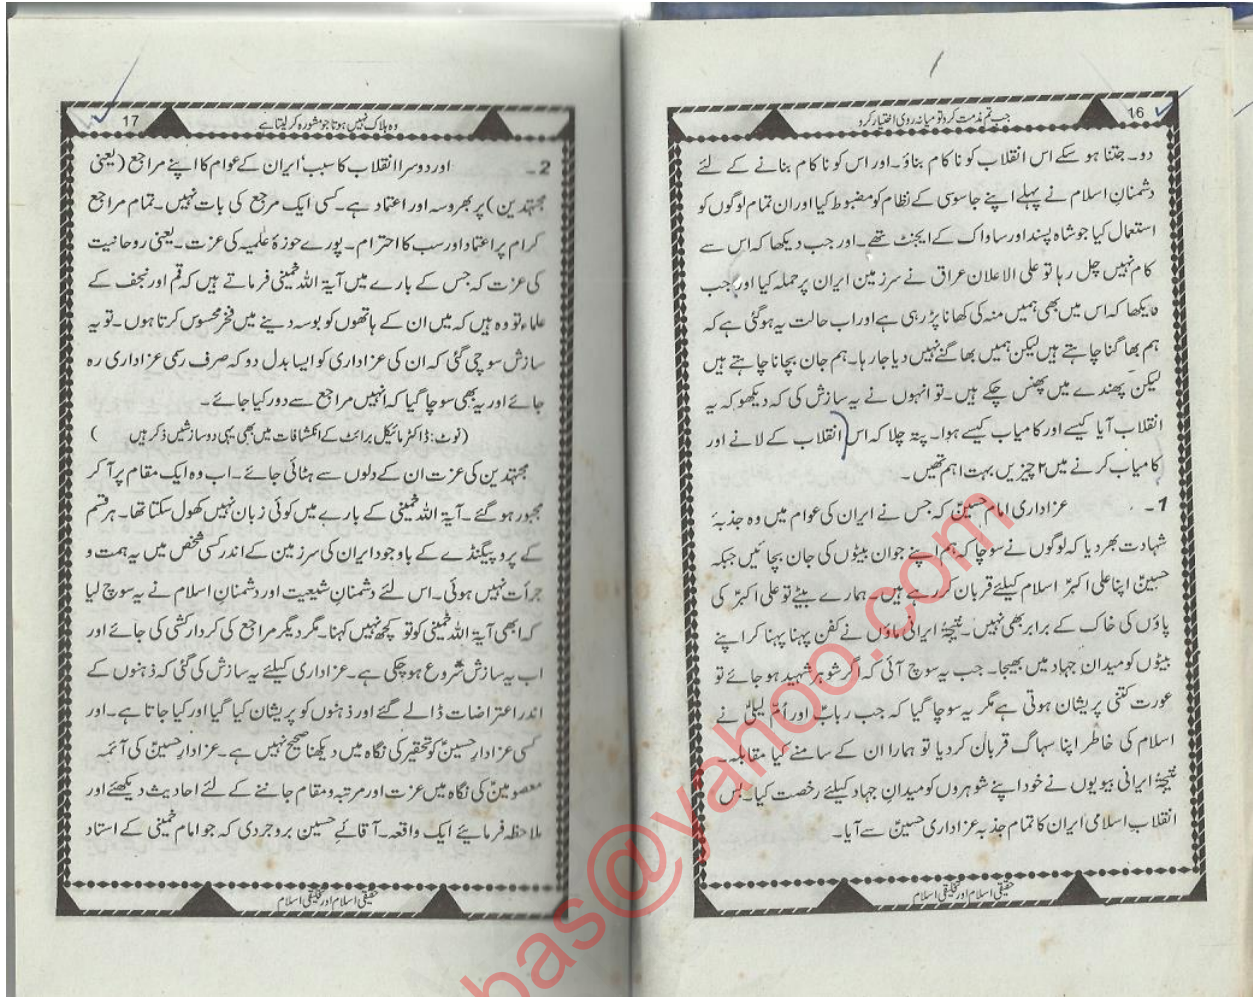 16
جب تم مذمت کرو تو میانہ روی اختیار کرو
دو۔ جتنا ہو سکے اس انقلاب کو ناکام بناؤ۔ اور اس کو ناکام بنانے کے لئے
دشمنانِ اسلام نے پہلے اپنے جاسوسی کے نظام کو مضبوط کیا اور ان تمام لوگوں کو
استعمال کیا جو شاہ پسند اور ساواک کے ایجنٹ تھے۔ اور جب دیکھا کہ اس سے
کام نہیں چل رہا تو علی الاعلان عراق نے سرزمین ایران پر حملہ کیا اور جب
دیکھا کہ اس میں بھی ہمیں منہ کی کھانا پڑ رہی ہے اور اب حالت یہ ہو گئی ہے کہ
ہم بھاگنا چاہتے ہیں لیکن ہمیں بھاگنے نہیں دیا جا رہا۔ ہم جان بچانا چاہتے ہیں
لیکن پھندے میں پھنس چکے ہیں۔ تو انہوں نے یہ سازش کی کہ دیکھو کہ یہ
انقلاب آیا کیسے اور کامیاب کیسے ہوا۔ پتہ چلا کہ اس انقلاب کے لانے اور
کامیاب کرنے میں ۲ چیزیں بہت اہم تھیں۔
1۔ عزاداری امام حسینؑ کہ جس نے ایران کی عوام میں وہ جذبۂ
شہادت بھر دیا کہ لوگوں نے سوچا کہ ہم اپنے جوان بیٹوں کی جان بچائیں جبکہ
حسینؑ اپنا علی اکبرؑ اسلام کیلئے قربان کر رہے ہیں۔ ہمارے بیٹے تو علی اکبرؑ کی
پاؤں کی خاک کے برابر بھی نہیں۔ نتیجۂ ایرانی ماؤں نے کفن پہنا پہنا کر اپنے
بیٹوں کو میدان جہاد میں بھیجا۔ جب یہ سوچ آئی کہ اگر شوہر شہید ہو جائے تو
عورت کتنی پریشان ہوتی ہے مگر یہ سوچا گیا کہ جب ربابؑ اور اُمّ لیلیٰؑ نے
اسلام کی خاطر اپنا سہاگ قربان کر دیا تو ہمارا ان کے سامنے کیا مقابلہ۔
نتیجۂ ایرانی بیویوں نے خود اپنے شوہروں کو میدانِ جہاد کیلئے رخصت کیا۔ بس
انقلاب اسلامی ایران کا تمام جذبہ عزاداری حسینؑ سے آیا۔
حقیقی اسلام اور تخلیقی اسلام
17
وہ ہلاک نہیں ہوتا جو مشورہ کر لیتا ہے
2۔ اور دوسرا انقلاب کا سبب' ایران کے عوام کا اپنے مراجع (یعنی
مجتہدین) پر بھروسہ اور اعتماد ہے۔ کسی ایک مرجع کی بات نہیں۔ تمام مراجع
کرام پر اعتماد اور سب کا احترام۔ پورے حوزۂ علمیہ کی عزت۔ یعنی روحانیت
کی عزت کہ جس کے بارے میں آیۃ اللہ خمینی فرماتے ہیں کہ قم اور نجف کے
علماء تو وہ ہیں کہ میں ان کے ہاتھوں کو بوسہ دینے میں فخر محسوس کرتا ہوں۔ تو یہ
سازش سوچی گئی کہ ان کی عزاداری کو ایسا بدل دو کہ صرف رسمی عزاداری رہ
جائے اور یہ بھی سوچا گیا کہ انہیں مراجع سے دور کیا جائے۔
(نوٹ: ڈاکٹر مائیکل برائٹ کے انکشافات میں بھی یہی دو سازشیں ذکر ہیں)
مجتہدین کی عزت ان کے دلوں سے ہٹائی جائے۔ اب وہ ایک مقام پر آ کر
مجبور ہو گئے۔ آیۃ اللہ خمینی کے بارے میں کوئی زبان نہیں کھول سکتا تھا۔ ہر قسم
کے پروپیگنڈے کے باوجود ایران کی سرزمین کے اندر کسی شخص میں یہ ہمت و
جرأت نہیں ہوئی۔ اس لئے دشمنانِ شیعیت اور دشمنانِ اسلام نے یہ سوچ لیا
کہ ابھی آیۃ اللہ خمینی کو تو کچھ نہیں کہنا۔ مگر دیگر مراجع کی کردار کشی کی جائے اور
اب یہ سازش شروع ہو چکی ہے۔ عزاداری کیلئے یہ سازش کی گئی کہ ذہنوں کے
اندر اعتراضات ڈالے گئے اور ذہنوں کو پریشان کیا گیا اور کیا جاتا ہے۔ اور
کسی عزادارِ حسینؑ کو تحقیر کی نگاہ میں دیکھنا صحیح نہیں ہے۔ عزادارِ حسینؑ کی آئمہ
معصومینؑ کی نگاہ میں عزت اور مرتبہ و مقام جاننے کے لئے احادیث دیکھئے اور
ملاحظہ فرمائیے ایک واقعہ۔ آقائے حسین بروجردی کہ جو امام خمینی کے استاد
حقیقی اسلام اور تخلیقی اسلام
bas@yahoo.com